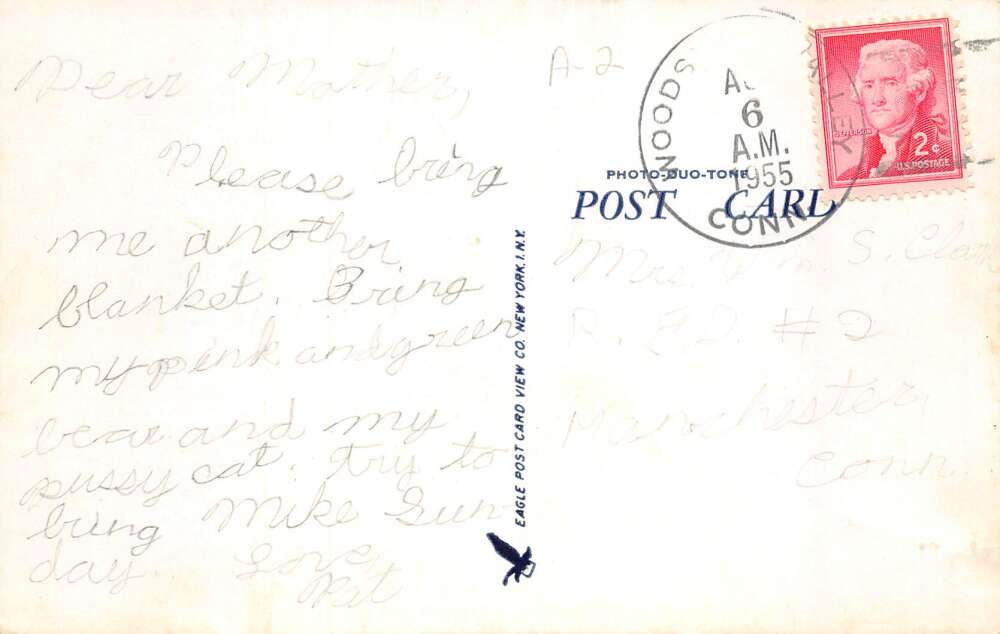 Dear Mother,
Please bring
me another
blanket. Bring
my pink and green
bear and my
pussy cat. Try to
bring Mike Sun-
day. Love
Pat
A-2
WOODS
LEY
6
A.M.
1955
CONN.
JEFFERSON
2¢
U.S. POSTAGE
PHOTO-DUO-TONE
POST CARD
EAGLE POST CARD VIEW CO. NEW YORK.1. N.Y.
Mrs. Wm. S. Clark
R.F.D. #2
Manchester,
Conn.